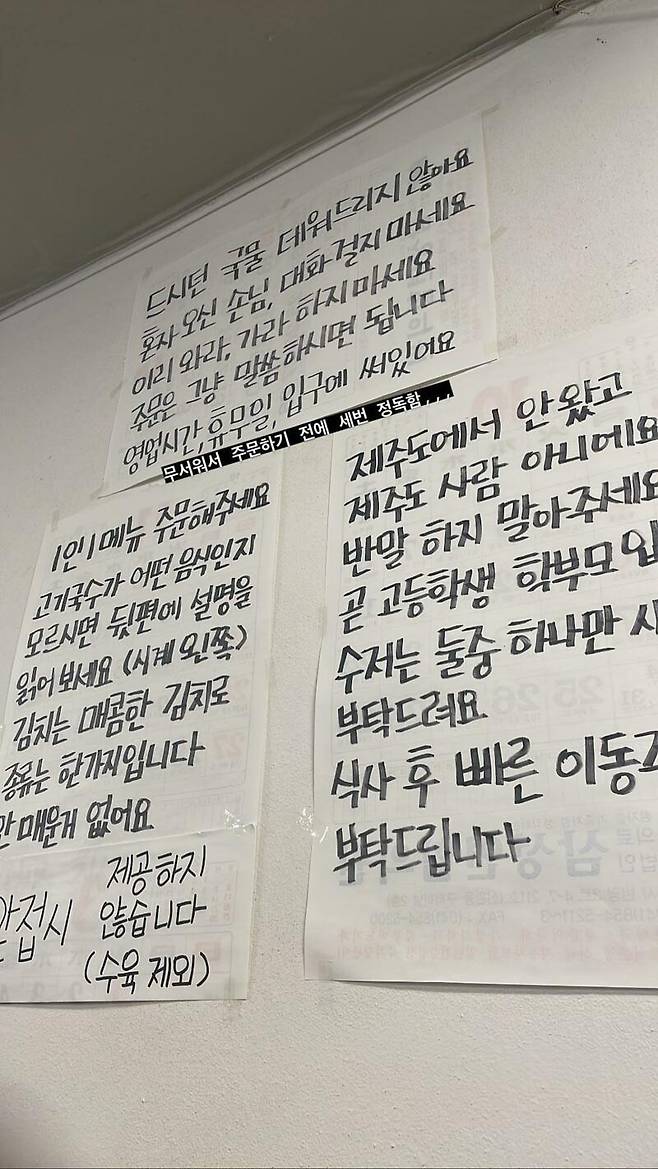 드시던 국물 데워드리지 않아요
혼자 오신 손님, 대화 걸지 마세요
이리 와라, 가라 하지마세요
주문은 그냥 말씀하시면 됩니다
영업시간, 휴무일, 입구에 써있어요
무서워서 주문하기 전에 세번 정독함...
1인 1메뉴 주문해주세요
고기국수가 어떤 음식인지
모르시면 뒷편에 설명을
읽어 보세요 (시계 왼쪽)
김치는 매콤한 김치로
종류는 한가지입니다
안매운게 없어요
접시
제공하지
않습니다
(수육 제외)
제주도에서 안왔고
제주도 사람 아니에요
반말 하지 말아주세요
곧 고등학생 학부모
수저는 둘중 하나만
부탁드려요
식사 후 빠른 이동
부탁드립니다